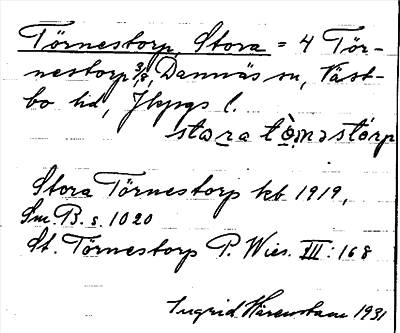 Törnestorp, Stora = 4 Tör-
nestorp 3/8, Dannäs sn, Väst-
bo hd, Jkpgs l.
stora tö̀rnəstórp
Stora Törnestorp kb 1919,
Sm B. s. 1020
St. Törnestorp P. Wies. III: 168
Ingrid Wärenstam 1931